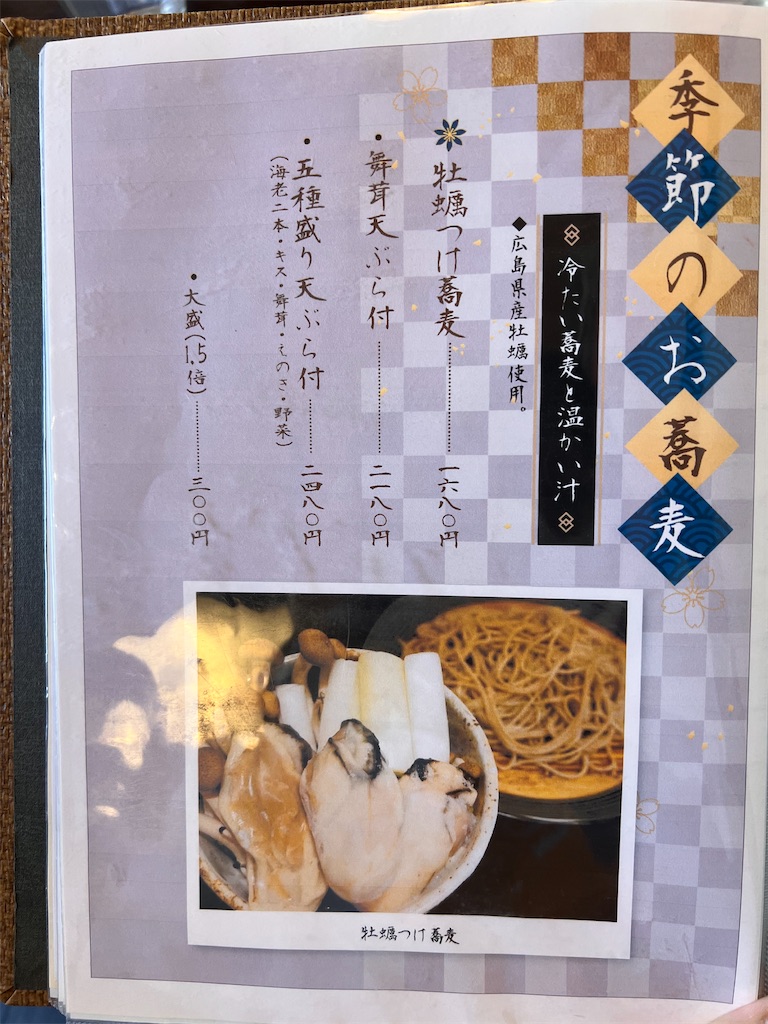 季節のお蕎麦
冷たい蕎麦と温かい汁
◆広島県産牡蠣使用。
牡蠣つけ蕎麦 一六八〇円
・舞茸天ぷら付 二一八〇円
・五種盛り天ぷら付 二四八〇円
(海老二本・キス・舞茸・えのき・野菜)
・大盛(1.5倍) 三〇〇円
牡蠣つけ蕎麦